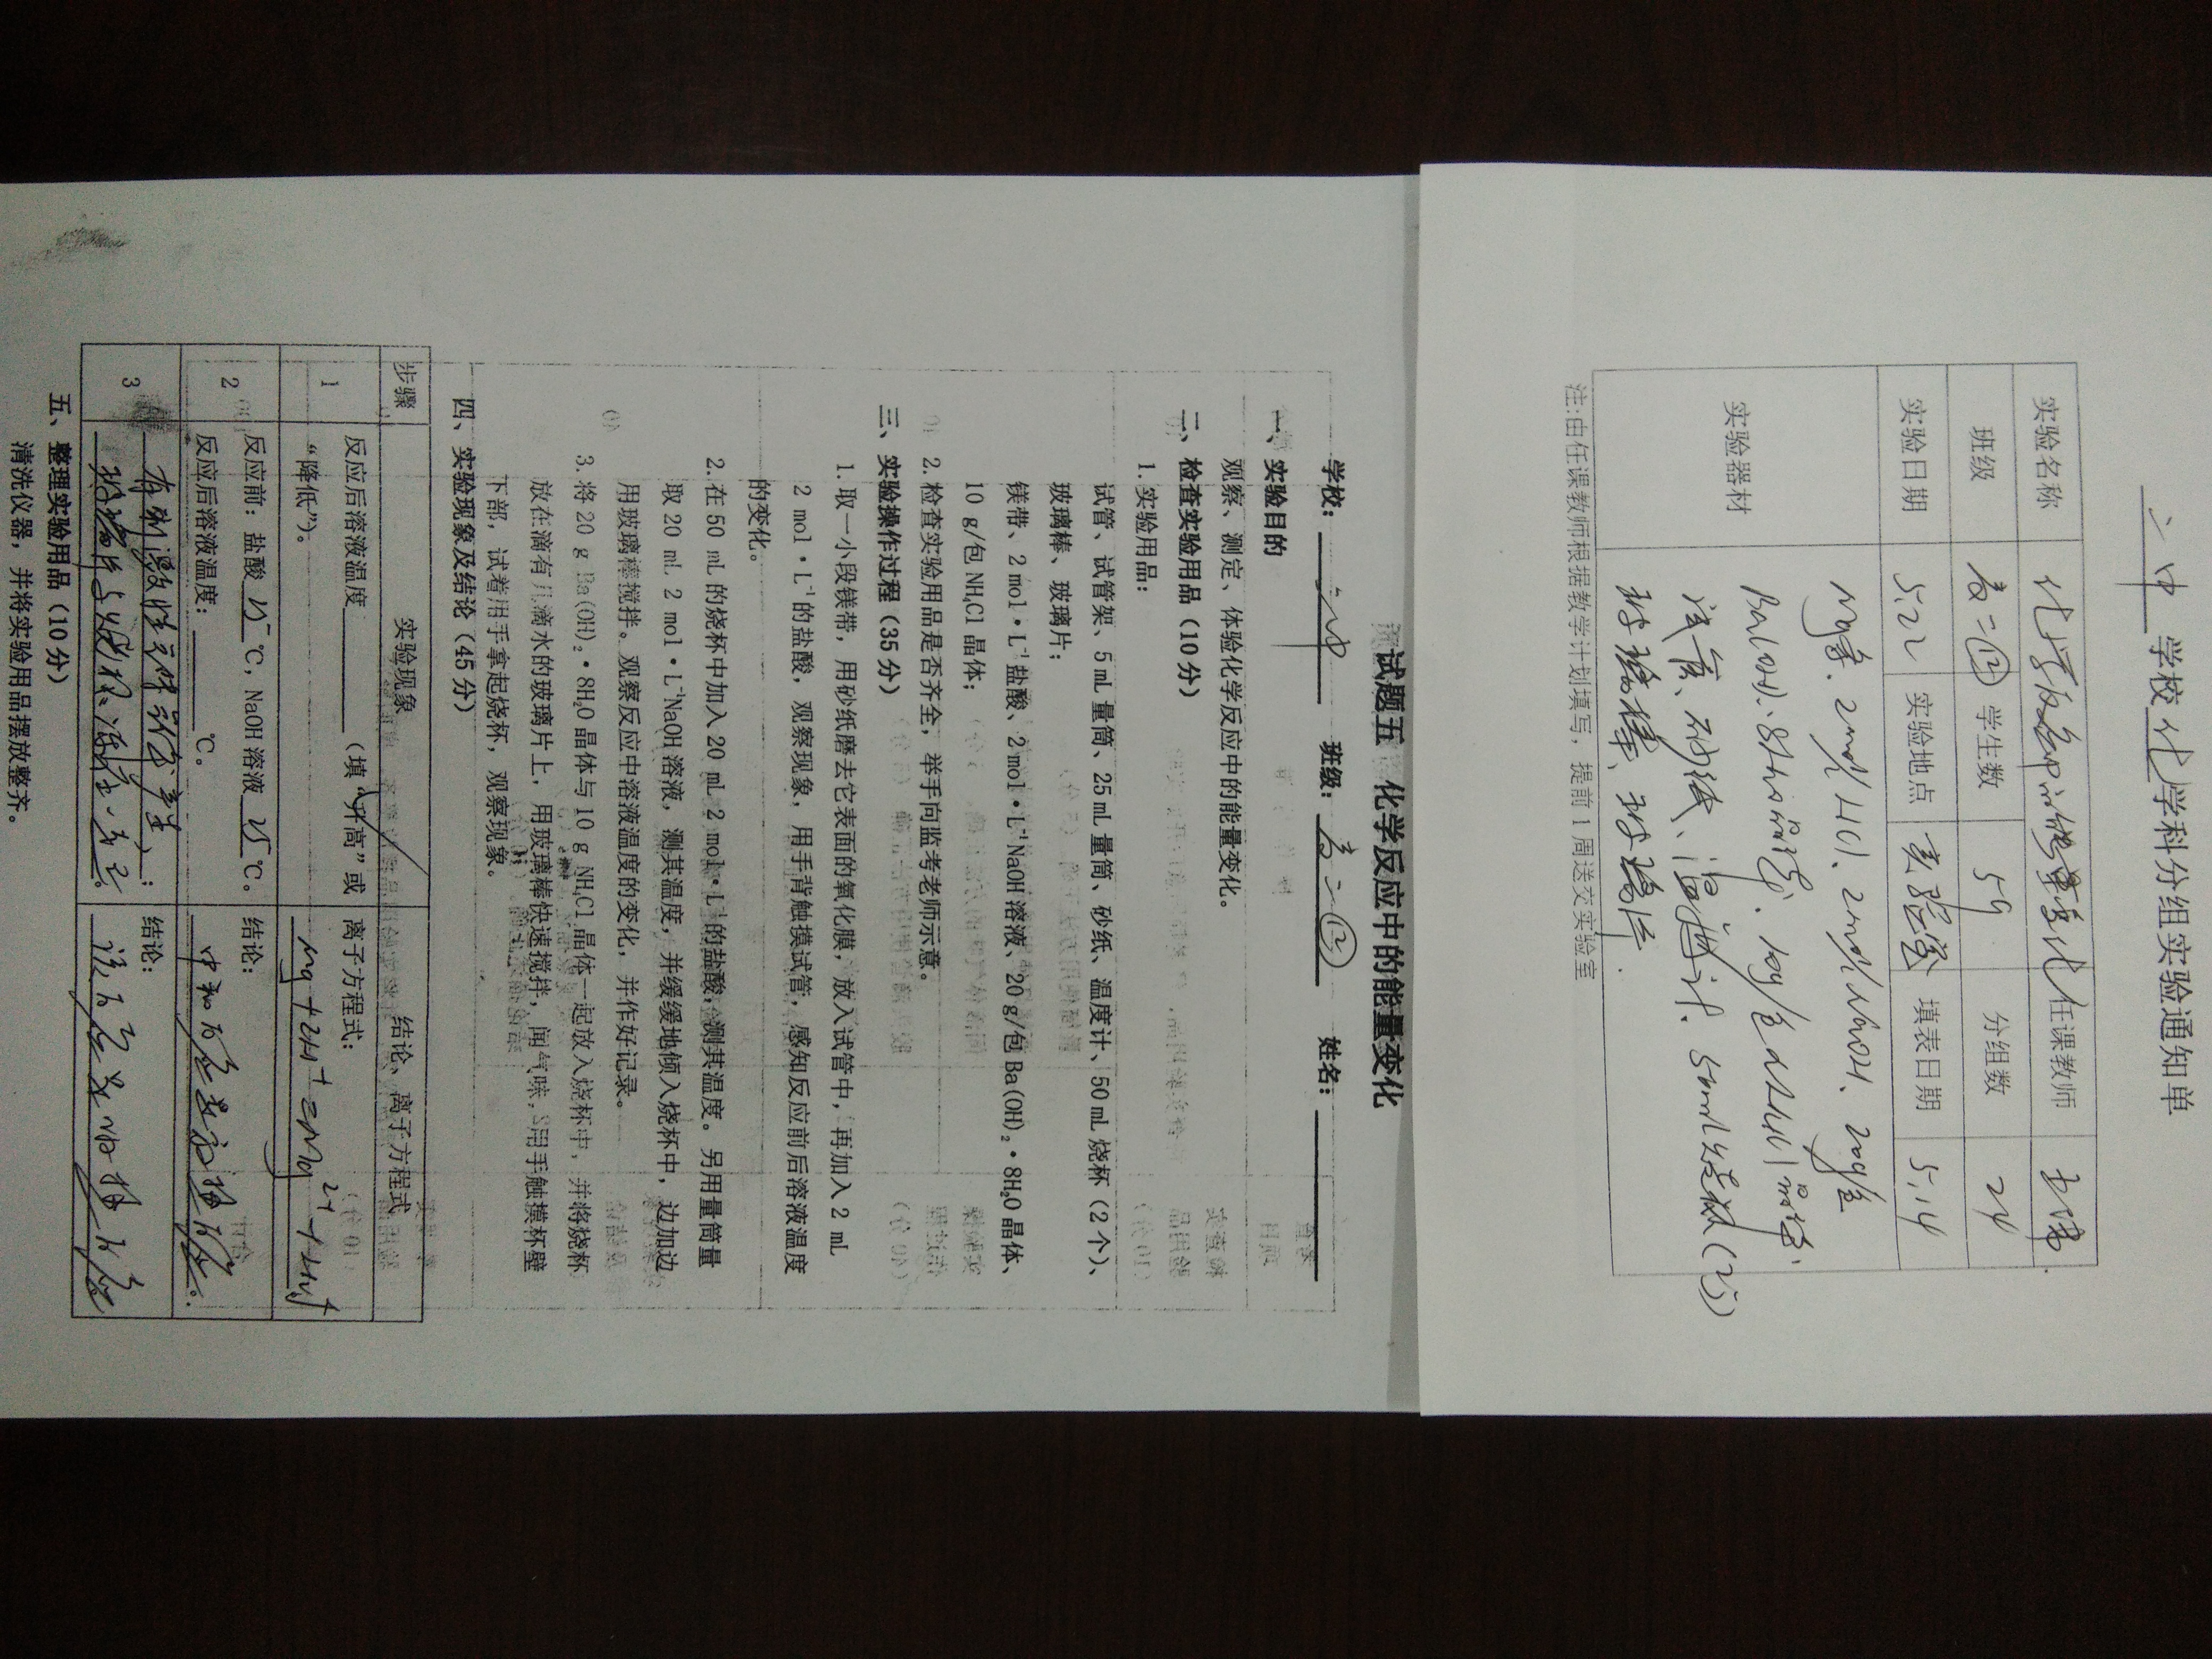 二中 学校 化 学科分组实验通知单
实验名称 化学反应中的能量变化 任课教师
班级 高二(12) 学生数 59 分组数 24
实验日期 5.22 实验地点 实验室 填表日期 5.14
实验器材 Mg条、2mol/L HCl、2mol/L NaOH、20g/包
Ba(OH)₂·8H₂O晶体、10g/包NH₄Cl晶体
试管、砂纸、温度计、50ml烧杯(2个)
玻璃棒、玻璃片.
注:由任课教师根据教学计划填写，提前1周送交实验室
试题五 化学反应中的能量变化
学校：二中 班级：高二(12) 姓名：
一、实验目的
观察、测定、体验化学反应中的能量变化。
二、检查实验用品（10分）
1. 实验用品：
试管、试管架、5 mL量筒、25 mL量筒、砂纸、温度计、50 mL烧杯（2个）、
玻璃棒、玻璃片；
镁带、2 mol·L⁻¹盐酸、2 mol·L⁻¹NaOH溶液、20 g/包Ba(OH)₂·8H₂O晶体、
10 g/包NH₄Cl晶体；
2. 检查实验用品是否齐全，举手向监考老师示意。
三、实验操作过程（35分）
1. 取一小段镁带，用砂纸磨去它表面的氧化膜，放入试管中，再加入2 mL
2 mol·L⁻¹的盐酸，观察现象，用手背触摸试管，感知反应前后溶液温度
的变化。
2. 在50 mL的烧杯中加入20 mL 2 mol·L⁻¹的盐酸，测其温度。另用量筒量
取20 mL 2 mol·L⁻¹NaOH溶液，测其温度，并缓缓地倾入烧杯中，边加边
用玻璃棒搅拌。观察反应中溶液温度的变化，并作好记录。
3. 将20 g Ba(OH)₂·8H₂O晶体与10 g NH₄Cl晶体一起放入烧杯中，并将烧杯
放在滴有几滴水的玻璃片上，用玻璃棒快速搅拌，闻气味，用手触摸杯壁
下部，试着用手拿起烧杯，观察现象。
四、实验现象及结论（45分）
步骤 实验现象 结论、离子方程式
1 反应后溶液温度（填“升高”或 离子方程式：
“降低”）。 Mg+2H⁺=Mg²⁺+H₂↑
2 反应前：盐酸 25 ℃，NaOH溶液 25 ℃。 结论：
反应后溶液温度： ℃。 中和反应是放热反应.
3 有刺激性气味气体产生； 结论：
玻璃片与烧杯冻在一起。 该反应是吸热反应
五、整理实验用品（10分）
清洗仪器，并将实验用品摆放整齐。